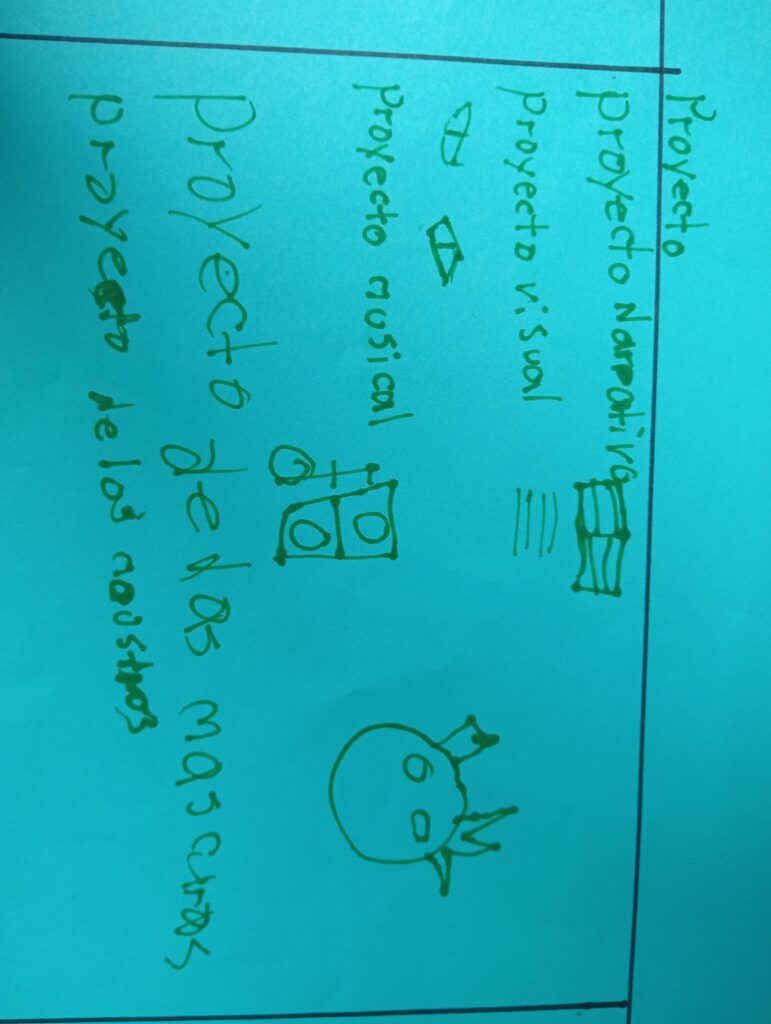 Proyecto
Proyecto Narrativo
Proyecto visual
Proyecto musical
Proyecto de las mascaras
proyecto de los